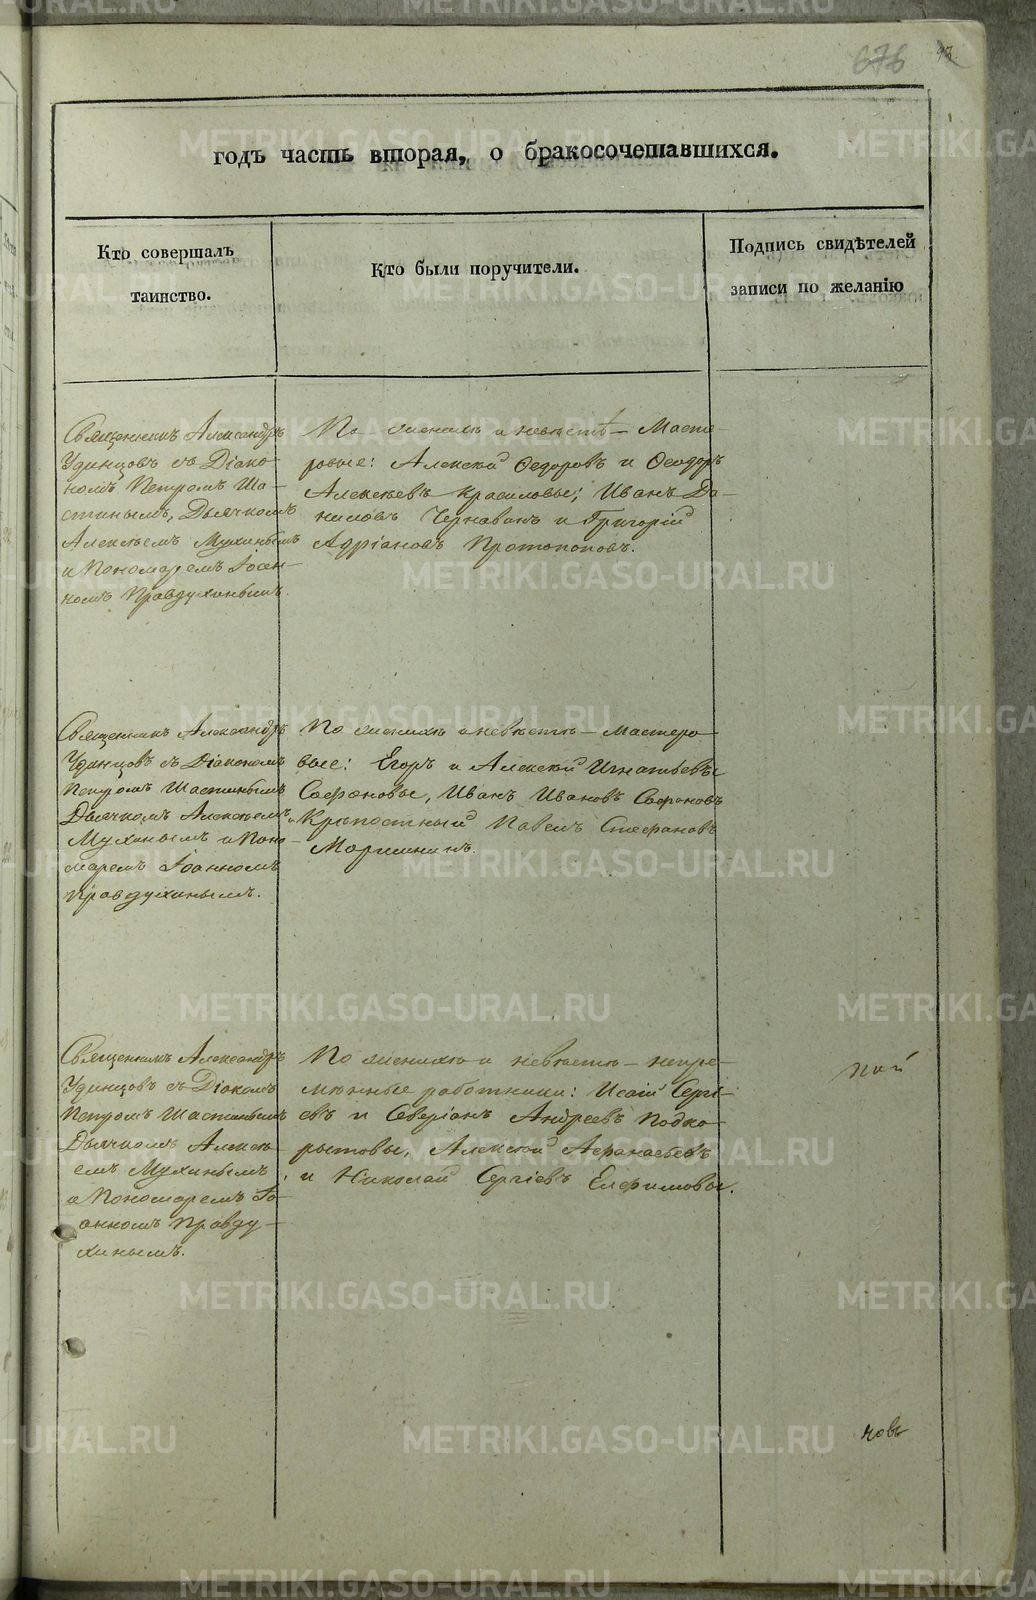 676 93.
годъ часть вторая, о бракосочетавшихся.
Кто совершалъ
таинство.
Кто были поручители.
Подпись свидѣтелей
записи по желанію
Священникъ Александръ
Удинцовъ съ Діако-
номъ Петромъ Ша-
стинымъ, Дьячкомъ
Алексѣемъ Мухинымъ
и Пономаремъ Іоан-
номъ Правдухинымъ.
По женихѣ и невѣстѣ – Масте-
ровые: Алексѣй Ѳедоровъ и Ѳеодоръ
Алексѣевъ Красиловы; Иванъ Да-
ниловъ Чернавинъ и Григорій
Адріановъ Протопоповъ.
Священникъ Александръ
Удинцовъ съ Діакономъ
Петромъ Шастинымъ
Дьячкомъ Алексѣемъ
Мухинымъ и Поно-
маремъ Іоанномъ
Правдухинымъ.
По женихѣ и невѣстѣ – мастеро-
вые: Егоръ и Алексѣй Игнатьевы
Сафоновы, Иванъ Ивановъ Сафоновъ
и Крѣпостный Павелъ Стефановъ
Священникъ Александръ
Удинцовъ съ Діаконъ
Петромъ Шастинымъ
Дьячкомъ Алексѣ-
емъ Мухинымъ
и Пономаремъ Іо-
анномъ Правду-
хинымъ.
По женихѣ и невѣстѣ – непре-
мѣнные работники: Исаій Сергі-
евъ и Северіанъ Андреевъ Подко-
рытовы, Алексѣй Афанасьевъ
и Николай Сергіевъ Елфимовы.
най
новъ
METRIKI.GASO-URAL.RU